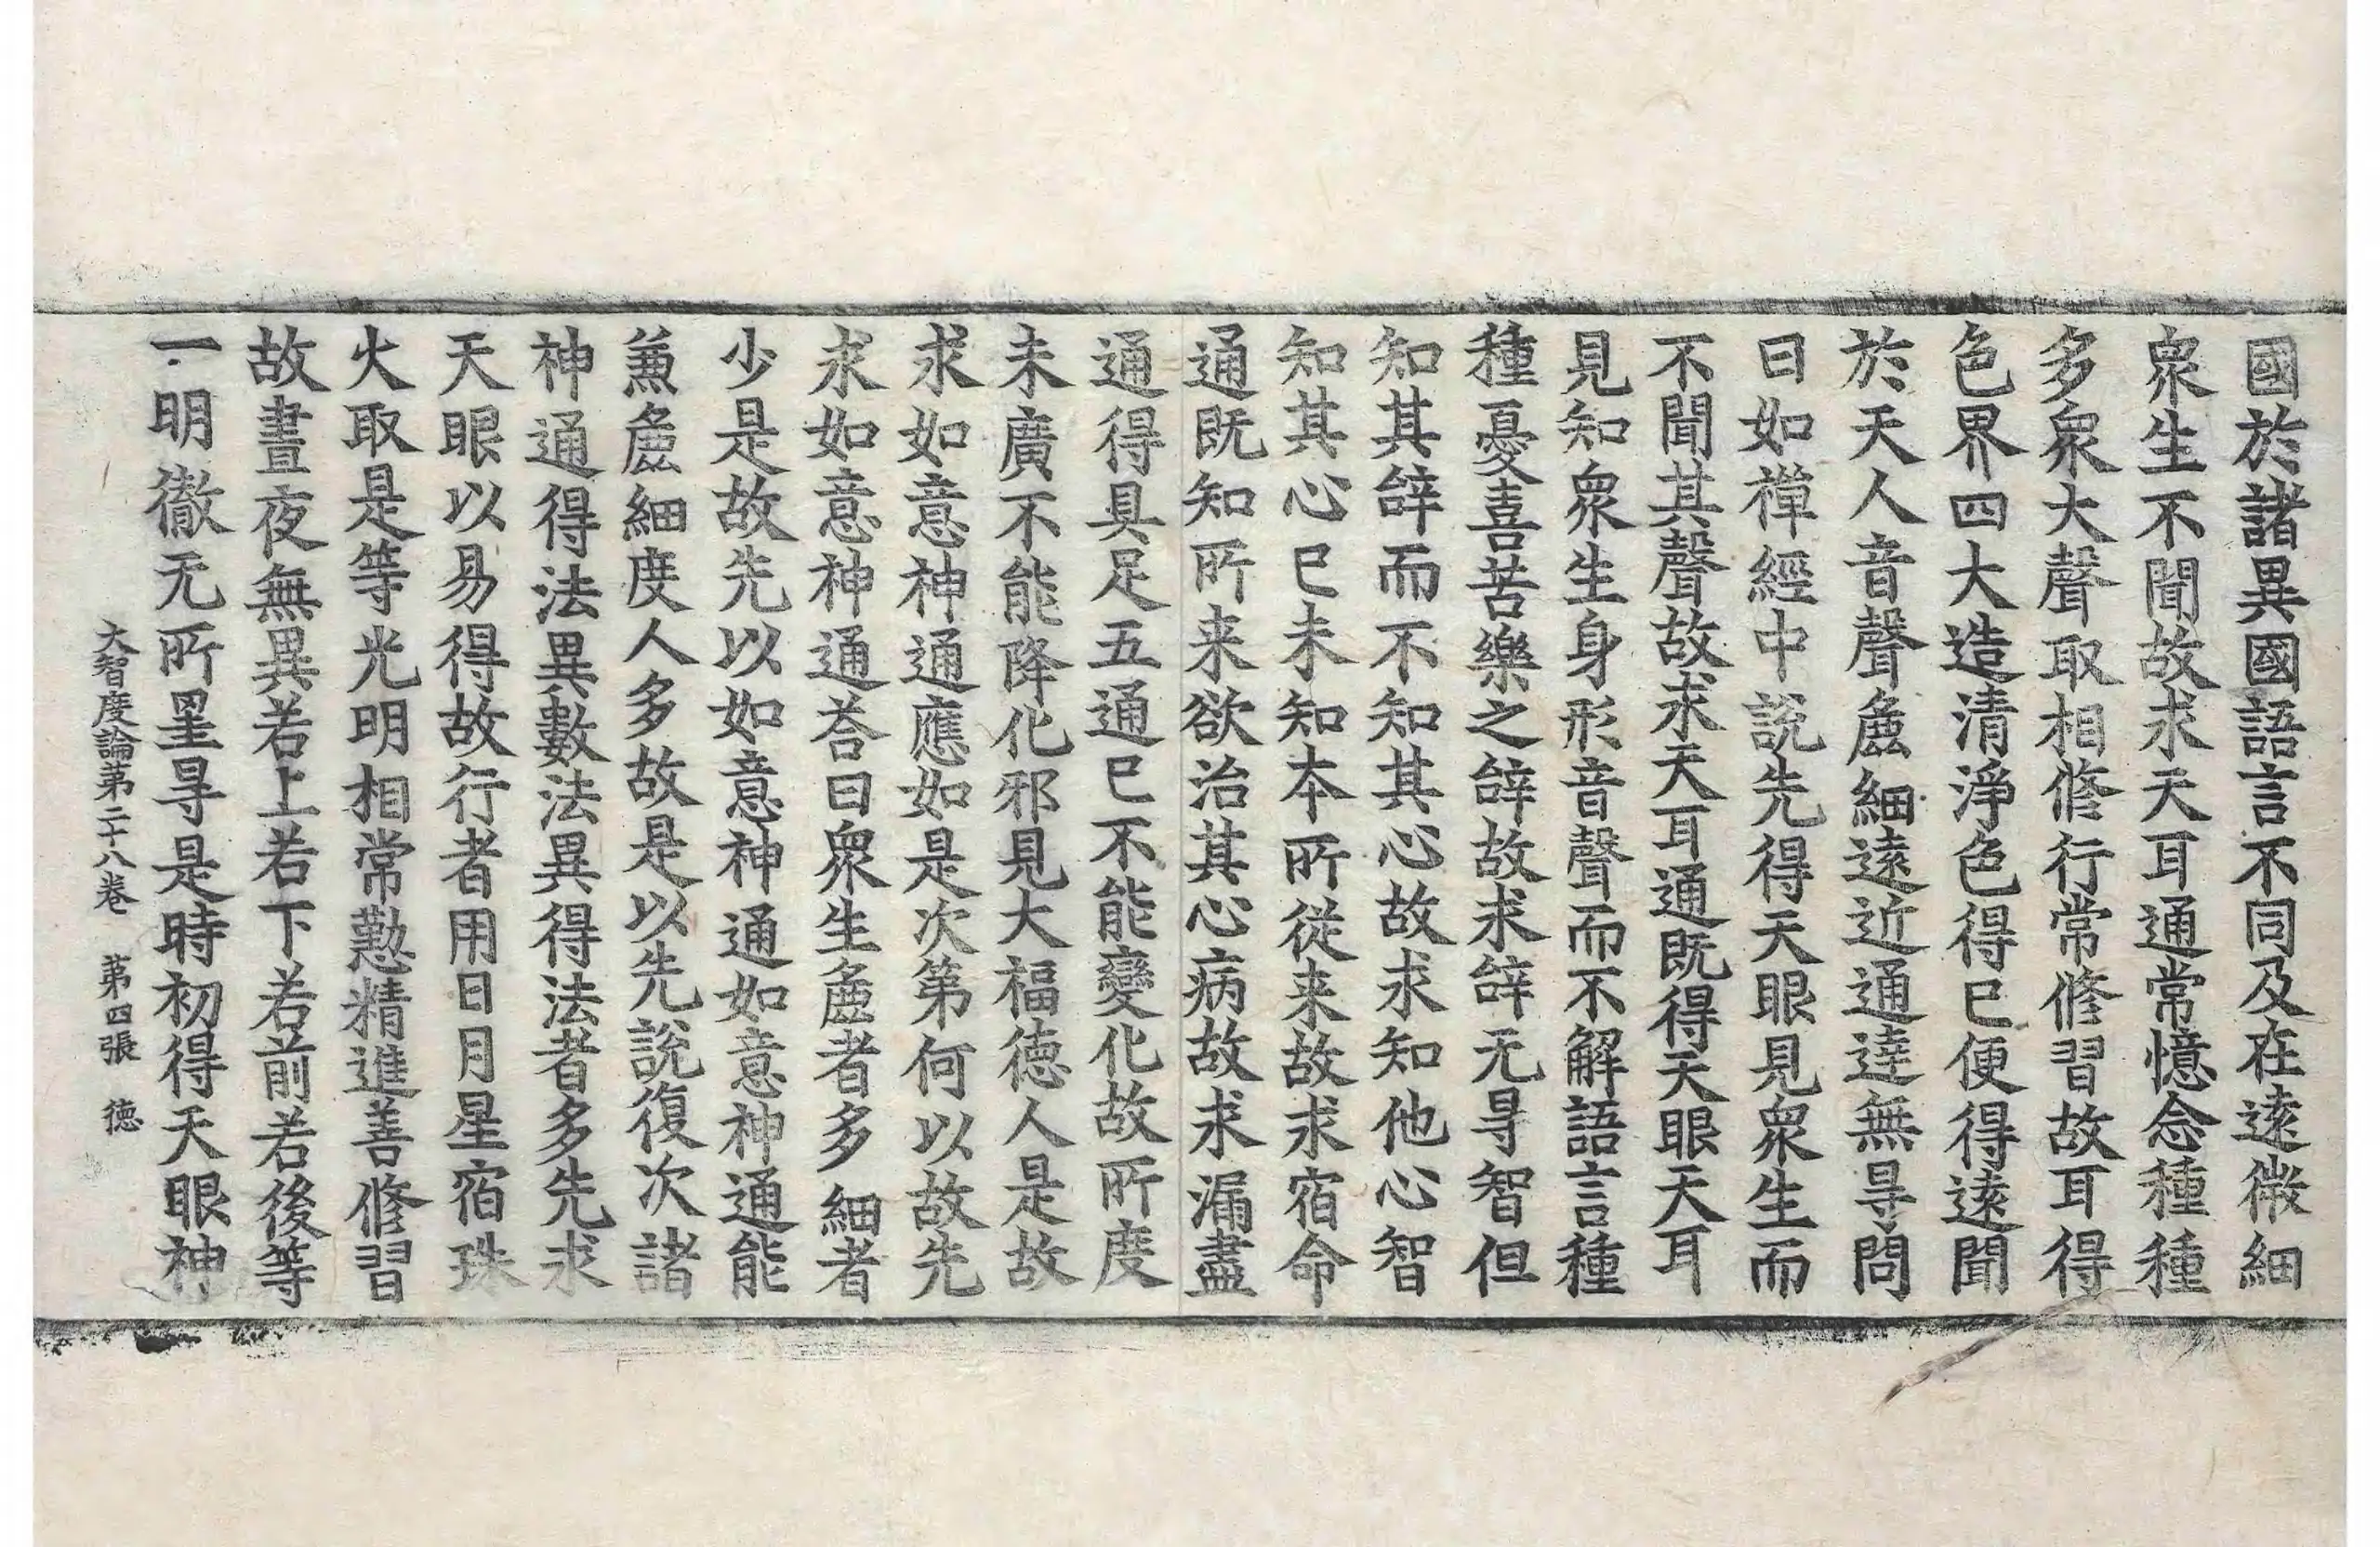 國於諸異國語言不同及在遠微細
衆生不聞故求天耳通常憶念種種
多衆大聲取相修行常修習故耳得
色界四大造清淨色得已便得遠聞
於天人音聲麁細遠近通達無㝵問
曰如禪經中說先得天眼見衆生而
不聞其聲故求天耳通既得天眼天耳
見知衆生身形音聲而不解語言種
種憂喜苦樂之辝故求辝无㝵智但
知其辝而不知其心故求知他心智
知其心已未知本所從来故求宿命
通既知所来欲治其心病故求漏盡
通得具足五通已不能變化故所度
未廣不能降化邪見大福德人是故
求如意神通應如是次第何以故先
求如意神通荅曰衆生麁者多細者
少是故先以如意神通如意神通能
兼麁細度人多故是以先說復次諸
神通得法異數法異得法者多先求
天眼以易得故行者用日月星宿珠
火取是等光明相常懃精進善修習
故晝夜無異若上若下若前若後等
一明徹无所罣㝵是時初得天眼神
大智度論第二十八卷 第四張 德